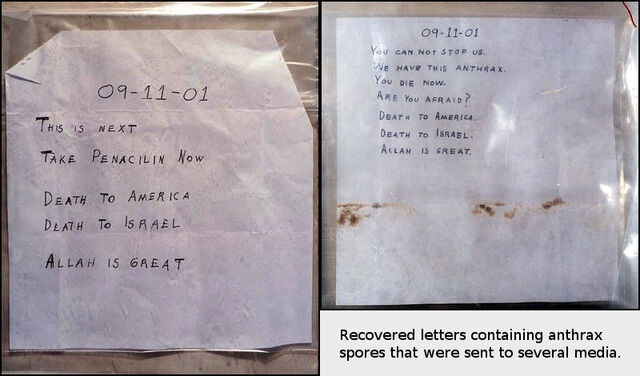 09-11-01
THIS IS NEXT
TAKE PENACILIN NOW
DEATH TO AMERICA
DEATH TO ISRAEL
ALLAH IS GREAT
09-11-01
YOU CAN NOT STOP US.
WE HAVE THIS ANTHRAX.
YOU DIE NOW.
ARE YOU AFRAID?
DEATH TO AMERICA.
DEATH TO ISRAEL.
ALLAH IS GREAT.
Recovered letters containing anthrax
spores that were sent to several media.